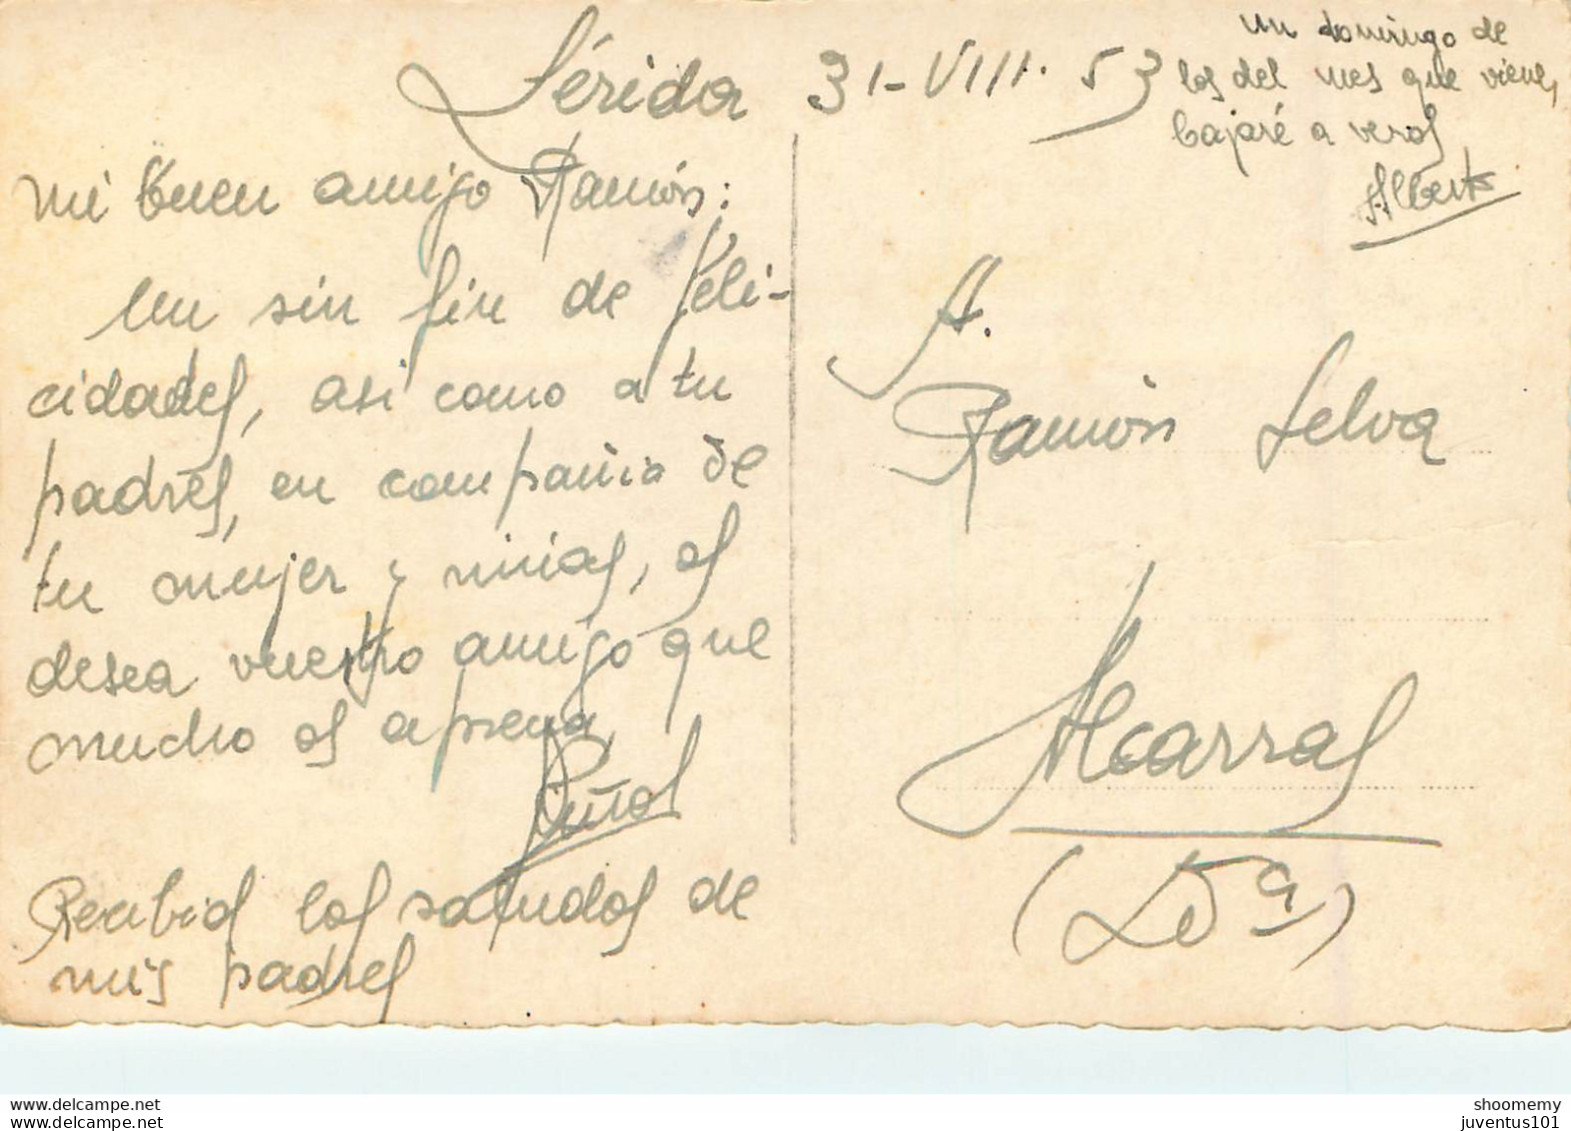 Lérida 31-VIII-53
mi buen amigo Ramón:
Un sin fin de feli-
cidades, asi como a tu
padres, en compañia de
tu mujer y niñas, os
desea vuestro amigo que
mucho os aprecia,
Piñol
Recibid los saludos de
mis padres
un domingo de
los del mes que viene,
bajaré a veros
Alberto
A.
Ramón Selva
Alcarras
(Lda)
delcampe.net
shoomemy
juventus101